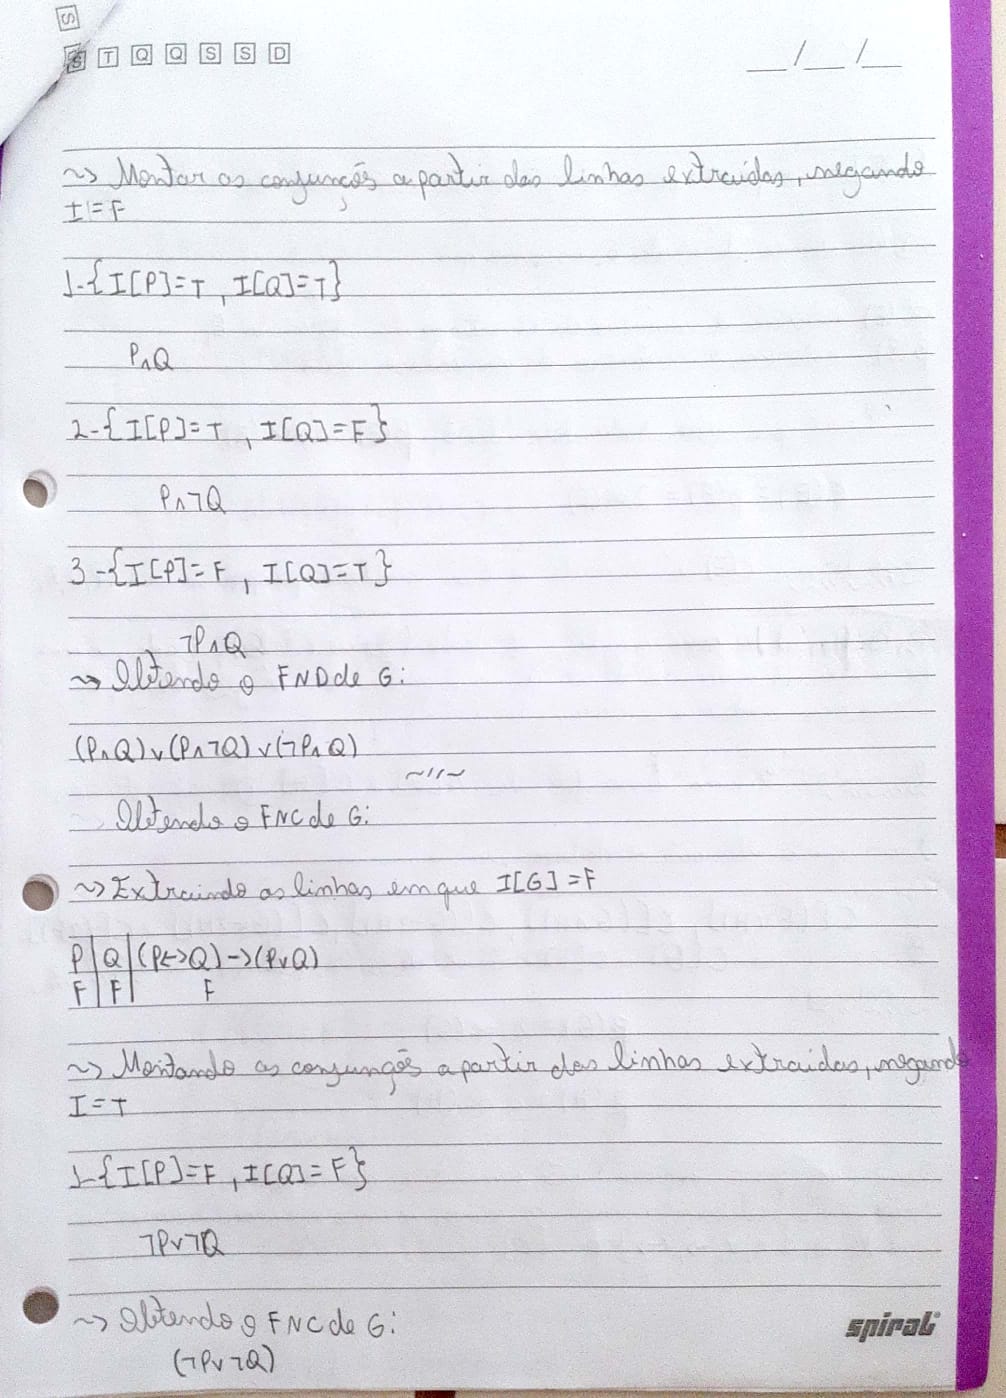 S
S T Q Q S S D
__/__/__
~> Montar as conjunçõs a partir das linhas extraidas, negando
I=F
1-{I[P]=T, I[Q]=T}
P∧Q
2-{I[P]=T, I[Q]=F}
P∧¬Q
3-{I[P]=F, I[Q]=T}
¬P∧Q
~> Obtendo a FND de G:
(P∧Q)∨(P∧¬Q)∨(¬P∧Q)
~//~
Obtendo a FNC de G:
~> Extraindo as linhas em que I[G]=F
P|Q|(P<->Q)->(P∨Q)
F|F| F
~> Montando as conjunçõs a partir das linhas extraidas, negando
I=T
1-{I[P]=F, I[Q]=F}
¬P∨¬Q
~> Obtendo a FNC de G:
(¬P∨¬Q)
spiral